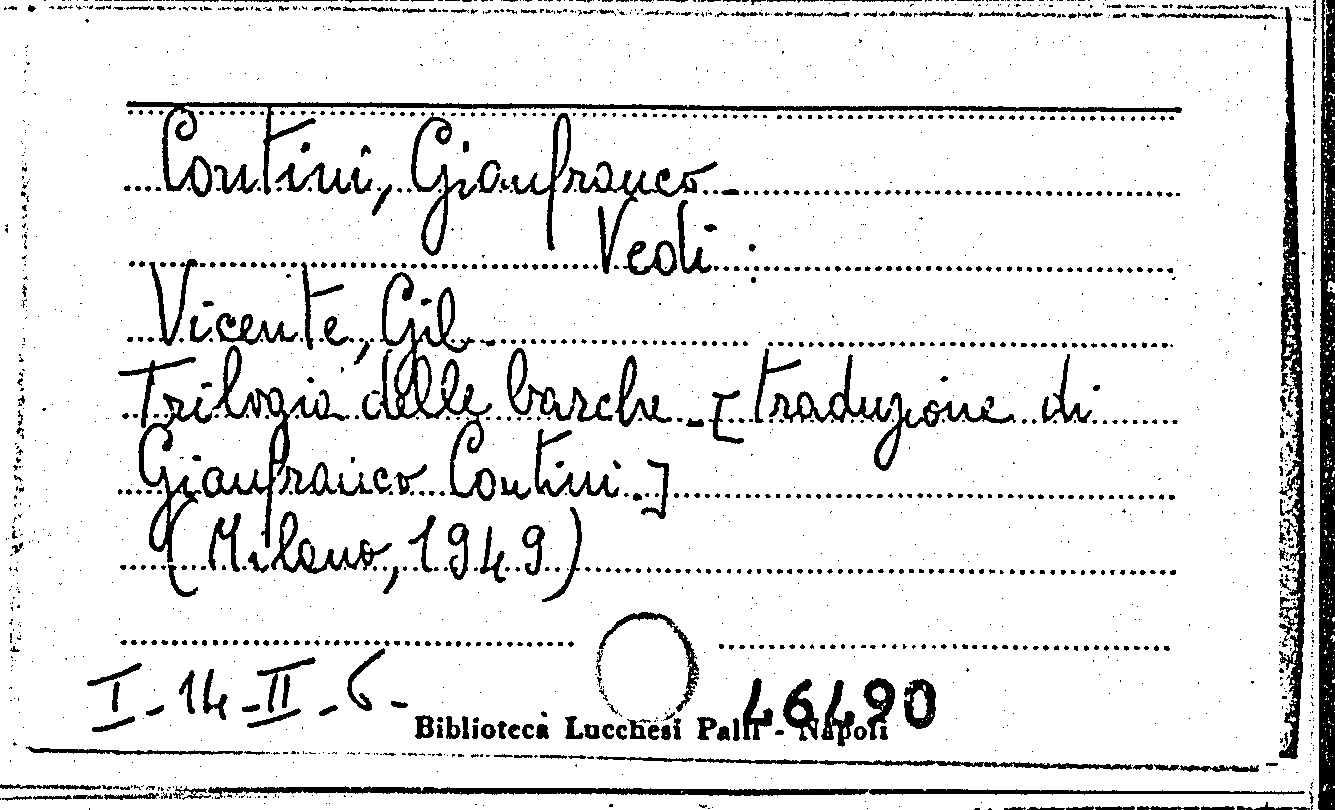 Contini, Gianfranco -
Vedi :
Vicente, Gil -
Trilogia delle barche - [traduzione di
Gianfranco Contini.]
(Milano, 1949)
I - 14 - II - 6 -
46490
Biblioteca Lucchesi Palli - Napoli